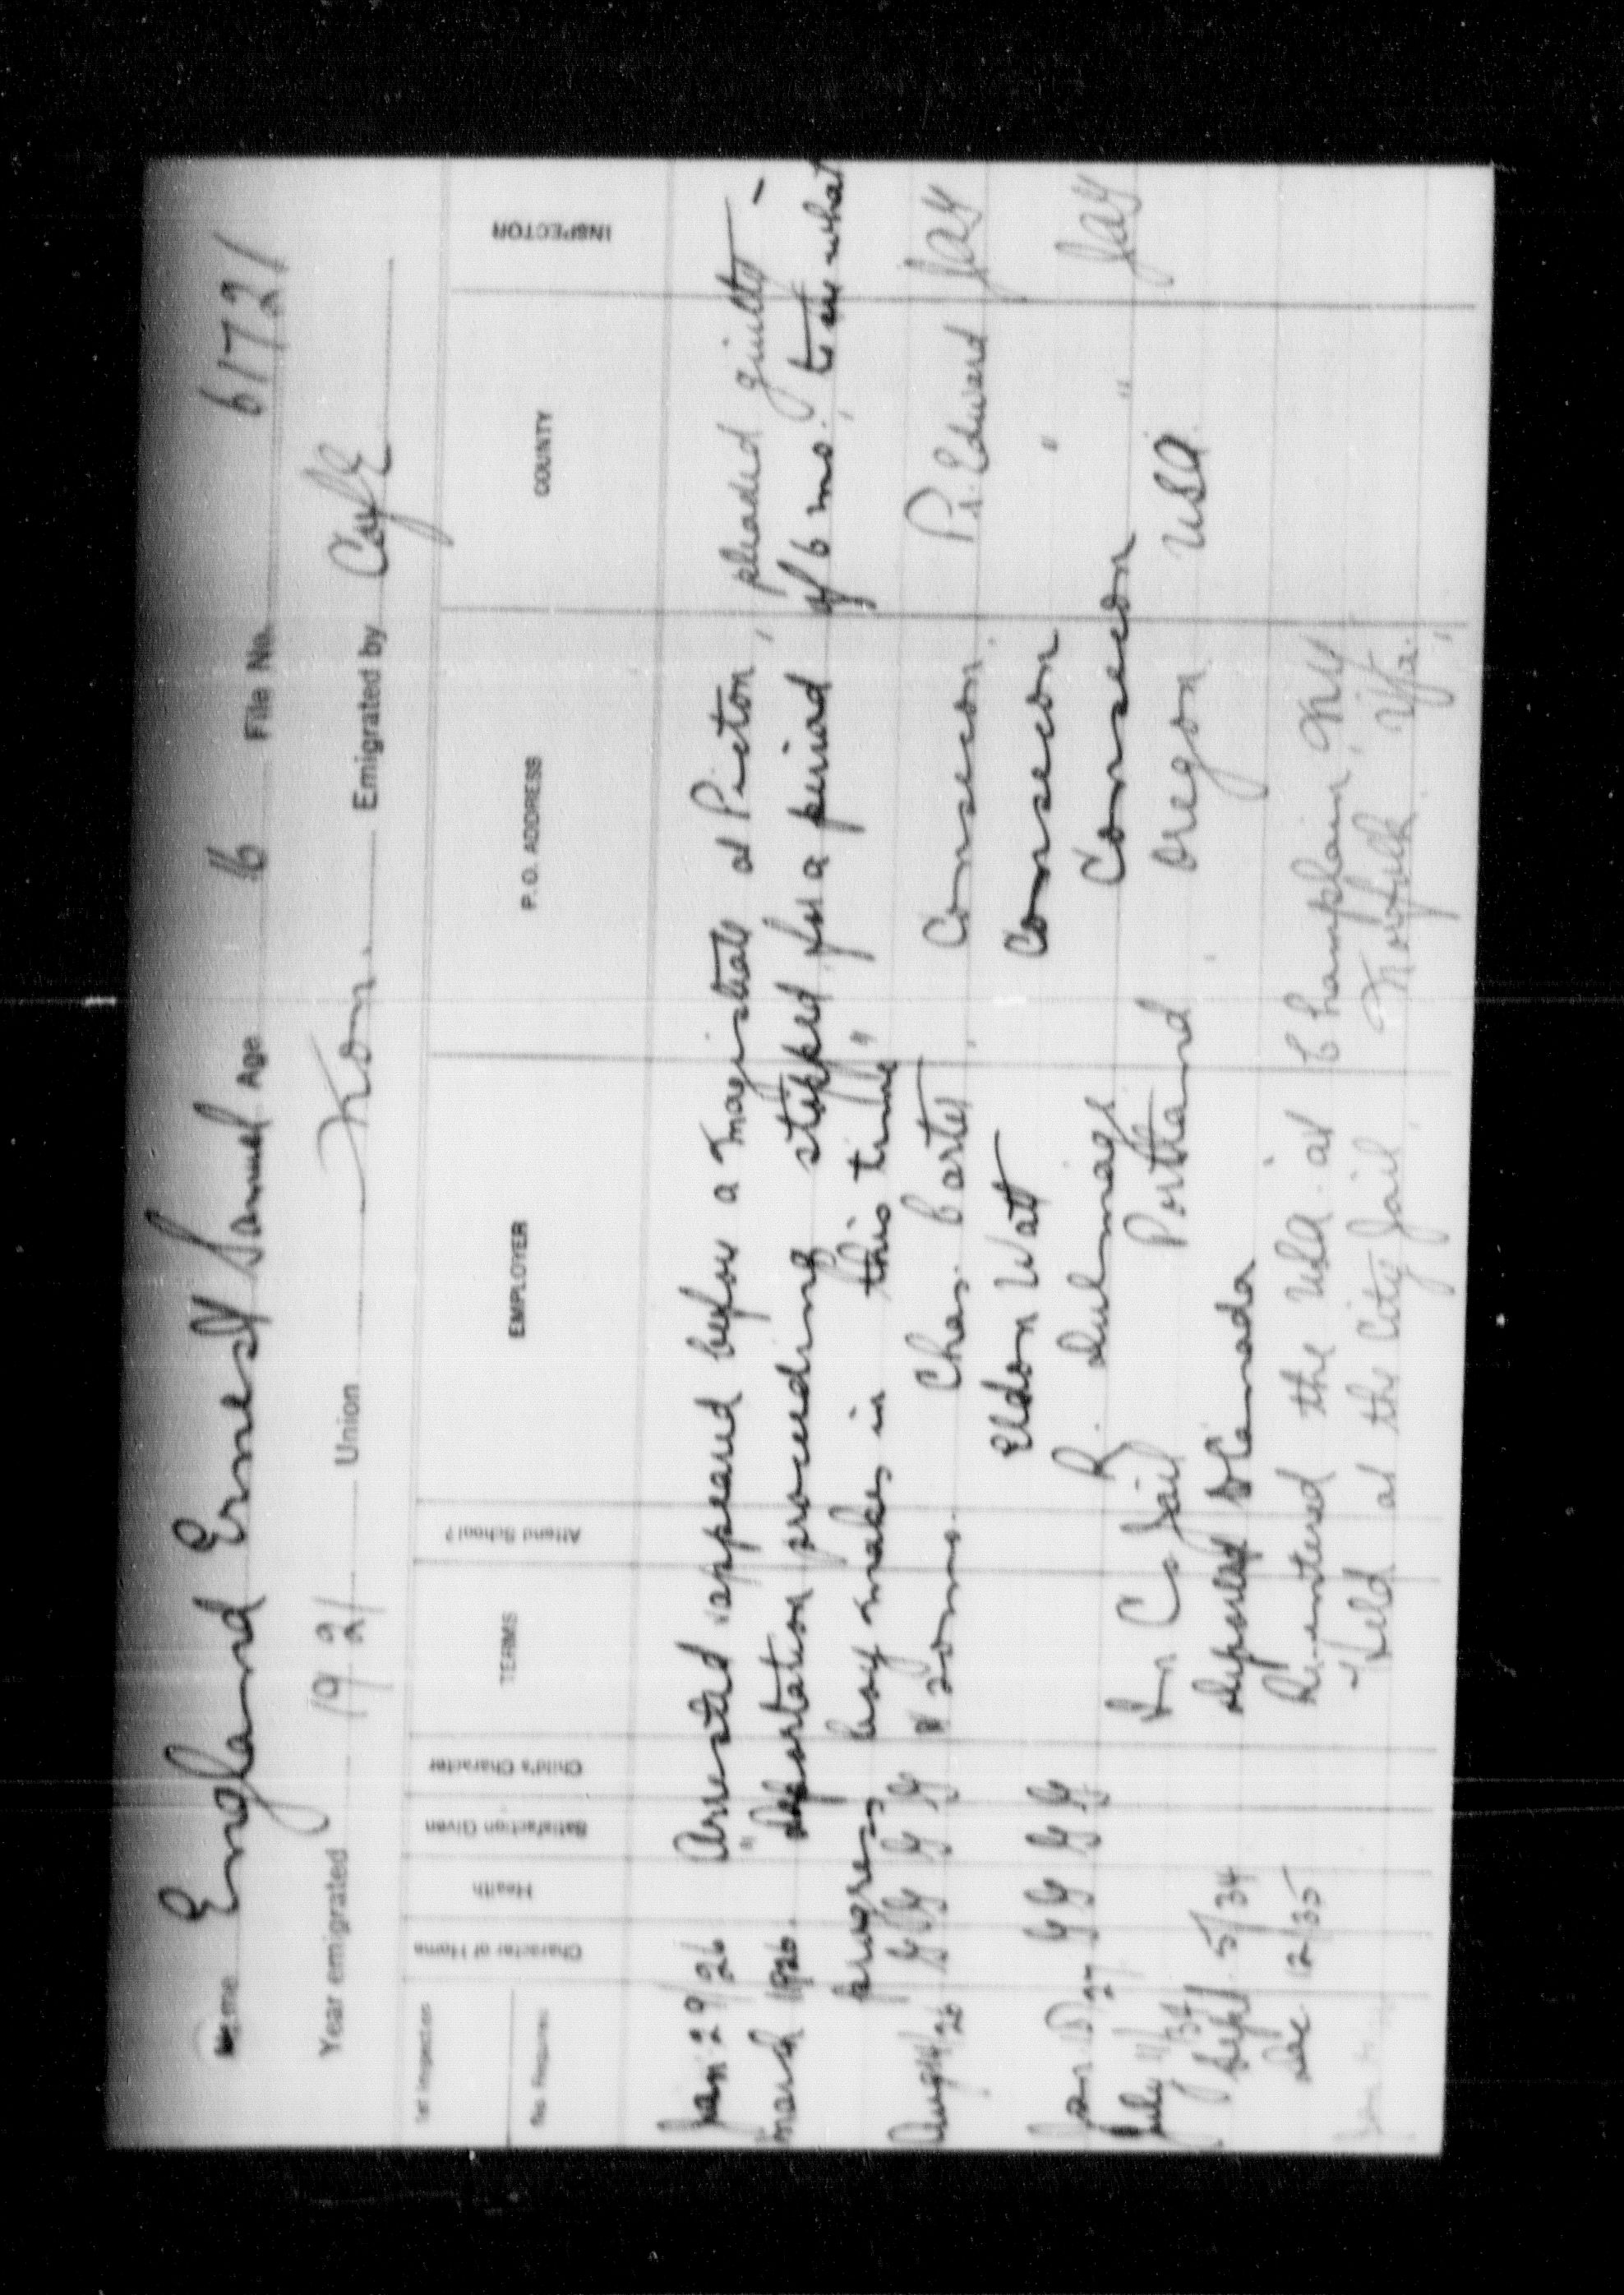 Name England Ernest Samuel Age 16 File No. 61721
Year emigrated 1921 Union Non. Emigrated by
1st Inspection
No. Required
Character of Home
Health
Satisfaction Given
Child's Character
TERMS
Attend School?
EMPLOYER
P.O. ADDRESS
COUNTY
INSPECTOR
Jan 29/26 Arrested appeared before a Magistrate at Picton, pleaded guilty –
March 1926. " Deportation proceeding stopped for a period of 6 mo. to see what
progress boy makes in this time"
Aug 14/26 G G G G 20 mo. Chas. Carter Consecon Pr. Edward JAY
Eldon Watt Consecon "
Jan 27 G G G G R. Dulmage Consecon " JAY
July 11/34 In Co Jail Portland Oregon USA.
Sept 5/34 deported to Canada
Dec 12/35 Re-entered the USA. at Champlain, NY
Held at the City Jail, Norfolk Va.